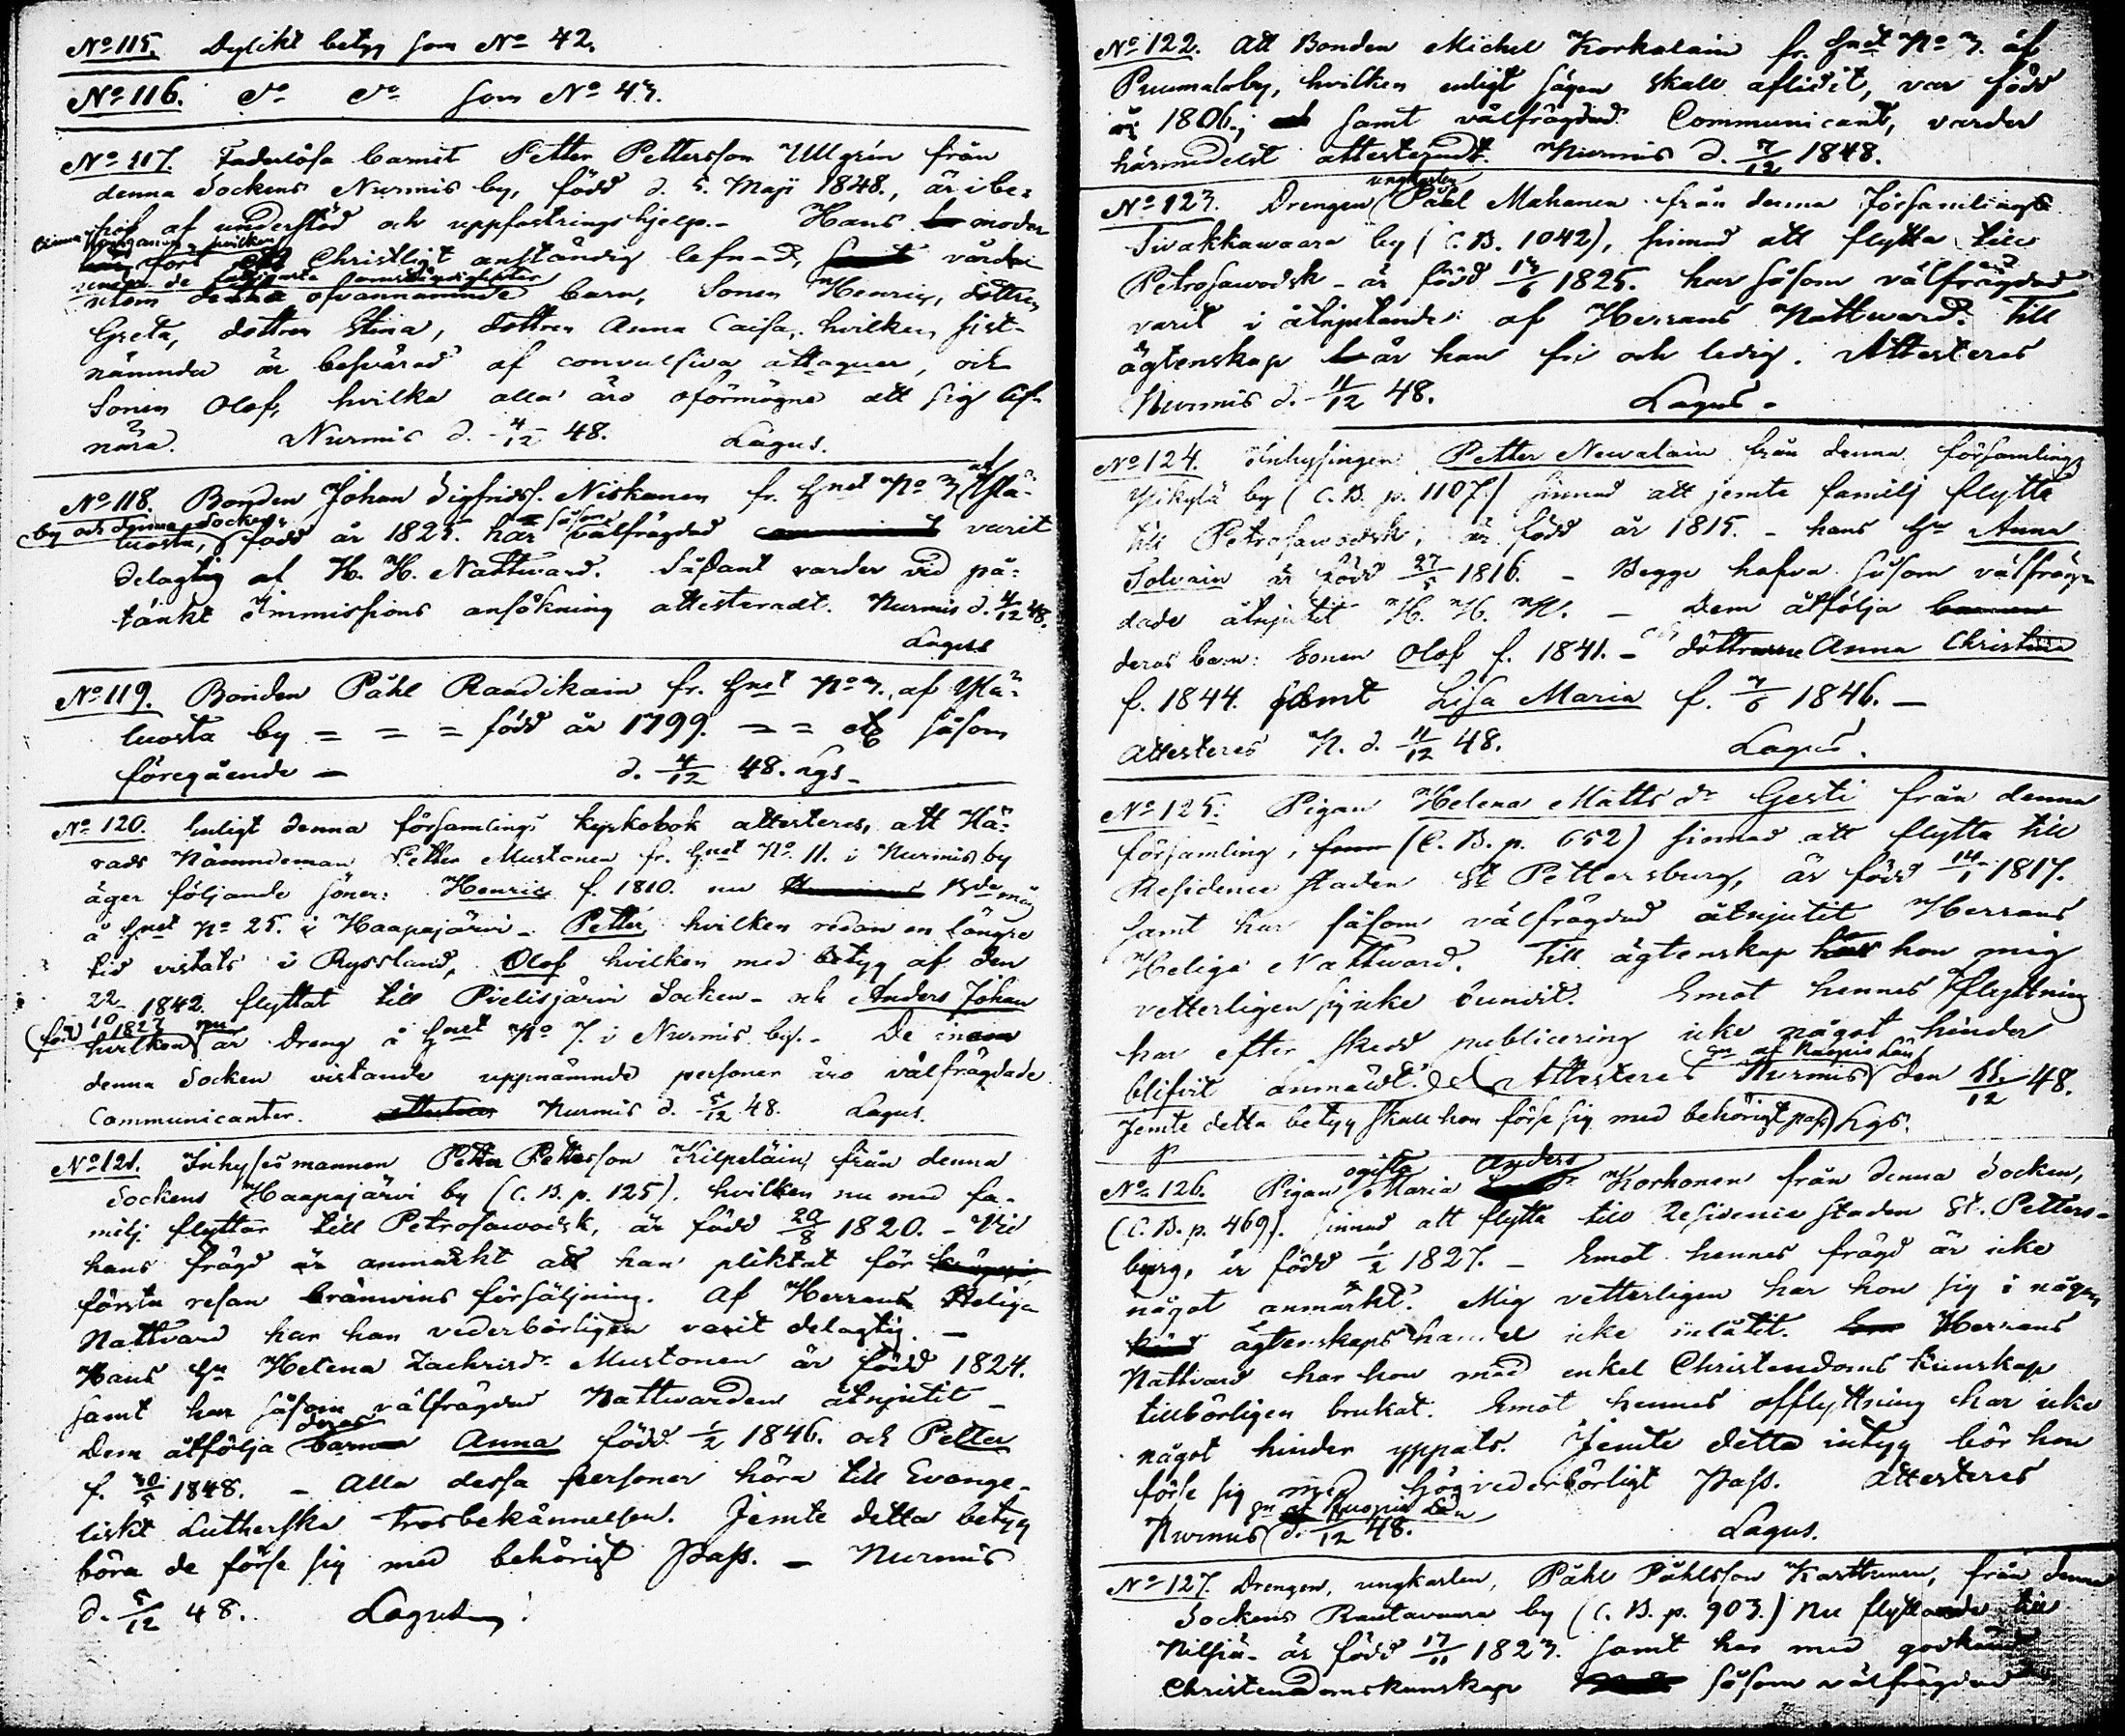 No 115. Dylikt betyg som No 42.
No 116. do do som No 43.
No 117. Faderlösa barnet Petter Pettersson Ullgrén från
denna Sockens Nurmis by, född d. 5. Maji 1848., är i be-
hof af understöd och uppfostringshjelp. - Hans moder
fört Christligt anständig lefnad, vårdar
utom ofvannämnde barn, Sonen Henric, dottren
Greta, dottren Stina, dottren Anna Caisa, hvilken sist-
nämnda är besvärad af convulsiva attaquer, och
Sonen Olof, hvilka alla äro oförmögne att sig lif-
nära. Nurmis d. 4/12 48. Lagus.
No 118. Bonden Johan Sigfridss. Niskanen fr. Hmet No 3 af Ylä-
by och denna Socken
luosta, född år 1825. har såsom välfrägdad varit
delagtig af H. H. Nattward. Sådant varder vid på-
tänkt Immissions ansökning attesteradt. Nurmis d. 4/12 48.
Lagus
No 119. Bonden Påhl Raudikain fr. Hmet No 3. af Ylä-
luosta by = = = född år 1799. = = etc såsom
föregående — d. 4/12 48. Lgs.
No 120. Enligt denna församlings kyrkobok attesteres, att Hä-
rads Nämndeman Petter Mustonen fr. Hmet No 11. i Nurmis by
äger följande söner: Henric f. 1810. nu måg
å Hmet No 25. i Haapajärvi - Petter, hvilken redan en längre
tid vistats i Ryssland, Olof hvilken med betyg af den
22/10 1842. flyttat till Pielisjärvi Socken - och Anders Johan
(född 1823 nu
hvilken är Dreng å Hmet No 7. i Nurmis by. - De inom
denna Socken vistande uppnämnde personer äro välfrägdade
Communicanter. Nurmis d. 5/12 48. Lagus.
No 121. Inhysesmannen Petter Pettersson Kilpeläin, från denna
Sockens Haapajärvi by (C. B. p. 125). hvilken nu med fa-
milj flyttar till Petrosawodsk, är född 20/8 1820. - Vid
hans frägd är anmärkt att han pliktat för
första resan bränwins försäljning. Af Herrans Heliga
Nattvard har han vederbörligen varit delagtig. —
Hans Hu Helena Zachrisdr Mustonen är född 1824.
samt har såsom välfrägdad Nattwarden åtnjutit -
deras
Dem åtfölja barn Anna född 1/2 1846. och Petter
f. 30/5 1848. - Alla dessa personer höra till Evange-
liskt Lutherska Trosbekännelsen. Jemte detta betyg
böra de förse sig med behörigt Pass. - Nurmis
d. 5/12 48. Lagus
No 122. Att Bonden Michel Korkalain fr. Hmet No 3. af
Puumalaby, hvilken enligt sägen skall aflidit, var född
år 1806.; samt välfrägdad Communicant, varder
härmedelst attesteradt. Nurmis d. 7/12 1848.
ungkarlen
No 123. Drengen Påhl Mahanen från denna Församlings
Sivakkawaara by (C. B. 1042), sinnad att flytta till
Petrosawodsk - är född 13/6 1825. har såsom välfrägdad
varit i åtnjutande af Herrans Nattward. Till
ägtenskap är han fri och ledig. Attesteres
Nurmis d. 11/12 48. Lagus.
No 124. Inhysingen Petter Newalain från denna församlings
Ylikylä by (C. B. p. 1107.) sinnad att jemte familj flytta
till Petrosawodsk, är född år 1815. - hans Hu Anna
Solvain är född 27/5 1816. - Begge hafva såsom välfräg-
dade åtnjutit H. H. N. - Dem åtfölja
deras barn: Sonen Olof f. 1841. - döttrarne Anna Christina
f. 1844. samt Lisa Maria f. 7/6 1846. —
Attesteres N. d. 11/12 48. Lagus.
No 125: Pigan Helena Matts dr Gesti från denna
församling, (C. B. p. 652) sinnad att flytta till
Residence staden St Pettersburg, är född 14/1 1817.
samt har såsom välfrägdad åtnjutit Herrans
Heliga Nattward. Till ägtenskap har hon mig
vetterligen sig icke bundit. Emot hennes flyttning
har efter skedd publicering icke något hinder
blifvit anmäldt. Attesteres Nurmis den 11/12 48.
Jemte detta betyg skall hon förse sig med behörigt pass Lgs.
ogifta Anders
No 126. Pigan Maria Korhonen från denna Socken,
(C. B. p. 469). sinnad att flytta till Residence staden St. Petters-
burg, är född 1/2 1827. - Emot hennes frägd är icke
något anmärkt. Mig vetterligen har hon sig i någon
ägtenskaps handel icke inlåtit. Herrans
Nattvard har hon med enkel Christendoms kunskap
tillbörligen brukat. Emot hennes afflyttning har icke
något hinder yppats. Jemte detta intyg bör hon
förse sig med högvederbörligt Pass. Attesteres
af Kuopio Län
Nurmis d. 11/12 48. Lagus.
No 127. Drengen, ungkarlen, Påhl Påhlsson Karttunen, från denna
Sockens Rautavaara by (C. B. p. 903.) nu flyttande till
Nilsiä - är född 17/11 1823. samt har med godkänd
Christendomskunskap såsom välfrägdad